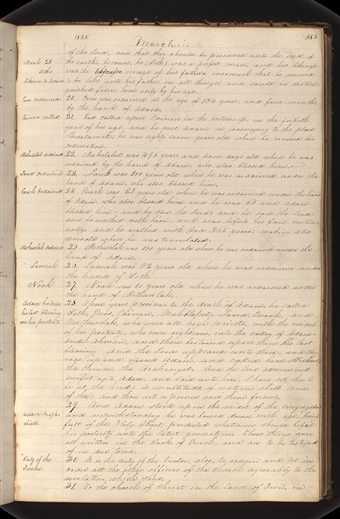 1835. March 28. 183
of the Lord, and that they should be preserved unto the end of
March 28. the earth, because he, (Seth,) was a perfect man, and his likness
was the express image of his father, insomuch that he seemed
to be like unto his father in all things; and could be distin-
guished from him only by his age.
Enos ordained 20. Enos was ordained at the age of 134 years, and four months
by the hand of Adam.
Cainan called 21. God called upon Cainan in the wilderness, in the fortieth
year of his age, and he met Adam in journeying to the place
Shedolamak: he was eighty seven years old when he received his
ordination.
Mahalaleel ordained 22. Mahalaleel was 496 years and seven days old when he was
ordained by the hand of Adam, who also blessed him.
Jared ordained 23. Jared was 200 years old when he was ordained under the
hand of Adam, who also blessed him.
Enoch ordained 24. Enoch was 25 years old when he was ordained under the hand
of Adam, who also blessed him; and he was 65 and Adam
blessed him — and he saw the Lord: and he
walked with him, and was before his face contin-
ually: and he walked with God 365 years: making 430
years old when he was translated.
Methuselah ordained 25. Methuselah was 100 years old when he was ordained under the
hand of Adam.
Lamech 26. Lamech was 32 years old when he was ordained under
the hand of Seth.
Noah 27. Noah was 10 years old when he was ordained under
the hand of Methuselah.
Adam bestows 28. Three years previous to the death of Adam, he called
his last blessing Seth, Enos, Cainan, Mahalaleel, Jared, Enoch, and
on his posterity. Methuselah, who were all high priests, with the residue
of his posterity, who were righteous, into the valley of Adam-
ondi-ahman, and there bestowed upon them his last
blessing. And the Lord appeared unto them, and they
rose up and blessed Adam, and called him Michael,
the Prince, the Archangel. And the Lord administered
comfort unto Adam, and said unto him, I have set thee to
be at the head: a multitude of nations shall come
of thee; and thou art a prince over them forever.
29. And Adam stood up in the midst of the congregation
Adam prophe- and notwithstanding he was bowed down with age, being
full of the Holy Ghost, predicted whatsoever should befall
his posterity unto the latest generation. These things were
all written in the book of Enoch, and are to be testified
of in due time.
Duty of the 30. It is the duty of the twelve, also, to ordain and set in
twelve order all the other officers of the church, agreeably to the
revelation which says:
31. To the church of Christ in the land of Zion in